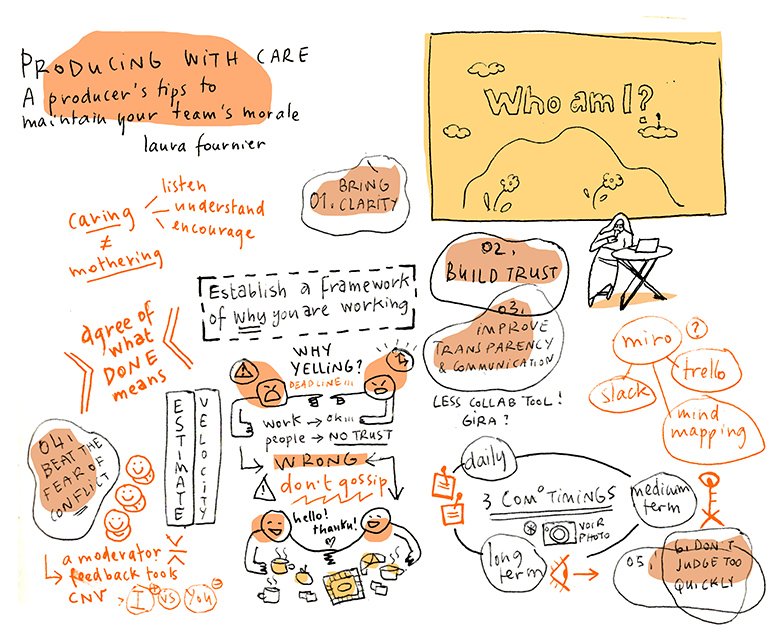 PRODUCING WITH CARE
A producer's tips to
maintain your team's morale
laura fournier
Who am I?
01. BRING
CLARITY
caring
≠
mothering
listen
understand
encourage
02.
BUILD TRUST
Establish a framework
of why you are working
03.
IMPROVE
TRANSPARENCY
& COMMUNICATION
LESS COLLAB TOOL!
GIRA?
miro
?
slack
trello
mind
mapping
agree of
what
DONE
means
ESTIMATE
VELOCITY
WHY
YELLING?
DEADLINE!!!
work → ok...
people → NO TRUST
WRONG
don't gossip
hello!
thanku!
04.
BEAT THE
FEAR OF
CONFLICT
a moderator
feedback tools
CNV → I vs You
3 COM° TIMINGS
daily
medium
term
long
term
VOIR
PHOTO
05.
6. DON'T
JUDGE TOO
QUICKLY